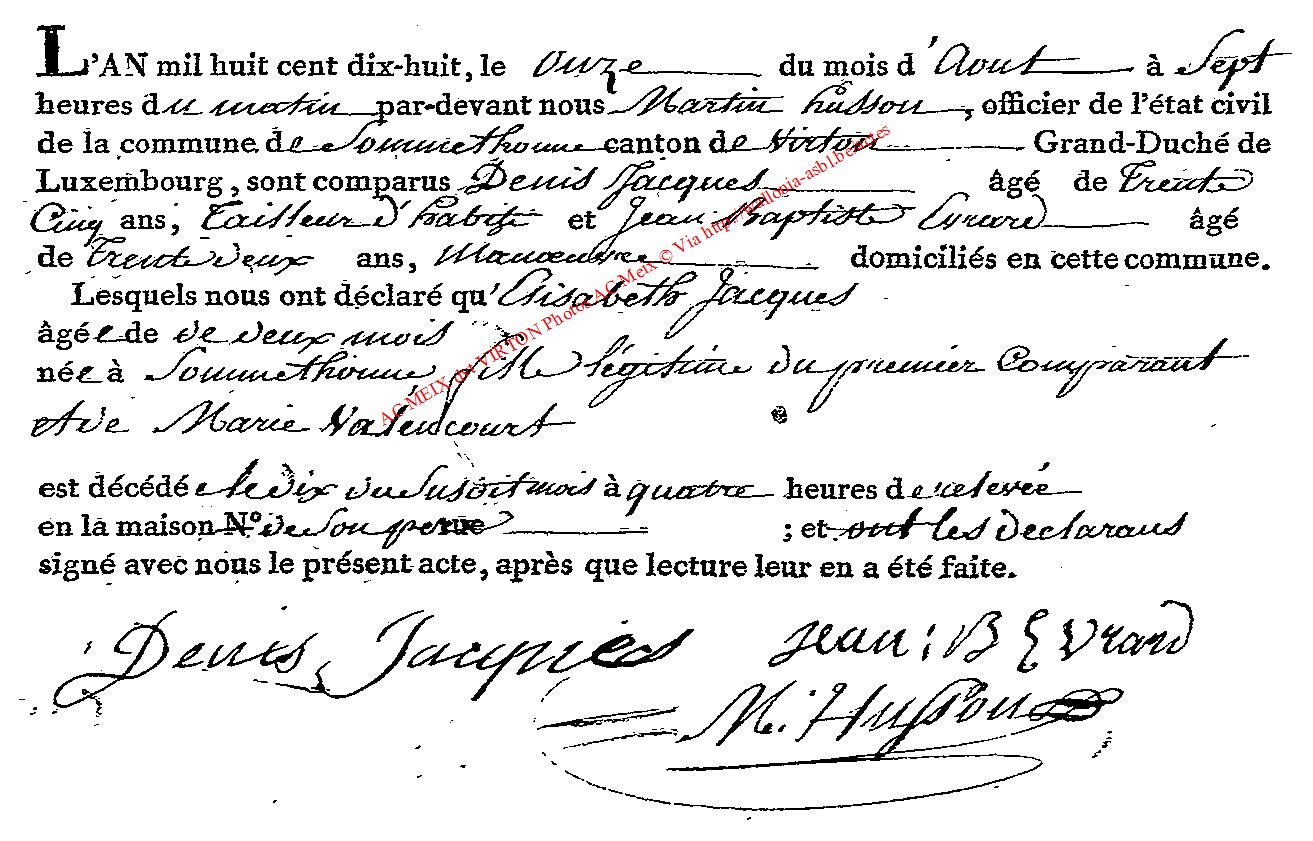 L'AN mil huit cent dix-huit, le onze du mois d'Aout à Sept
heures du matin par-devant nous Martin husson, officier de l'état civil
de la commune de Sommethonne canton de Virton Grand-Duché de
Luxembourg, sont comparus Denis Jacques âgé de Trente
Cinq ans, Tailleur d'habits et Jean Baptiste Evrard âgé
de Trente deux ans, Manoeuvre domiciliés en cette commune.
Lesquels nous ont déclaré qu'Elisabeth Jacques
âgée de de deux mois
née à Sommethonne, fille légitime du premier Comparant
et de Marie Valencourt
est décédée le dix du Susdit mois à quatre heures de relevée
en la maison N.º de Son pere ; et ont les declarans
signé avec nous le présent acte, après que lecture leur en a été faite.
Denis Jacques Jean : B Evrard
M. Husson
AC MEIX dvt VIRTON Photo AC Meix © Via http://wallonia-asbl.be/actes